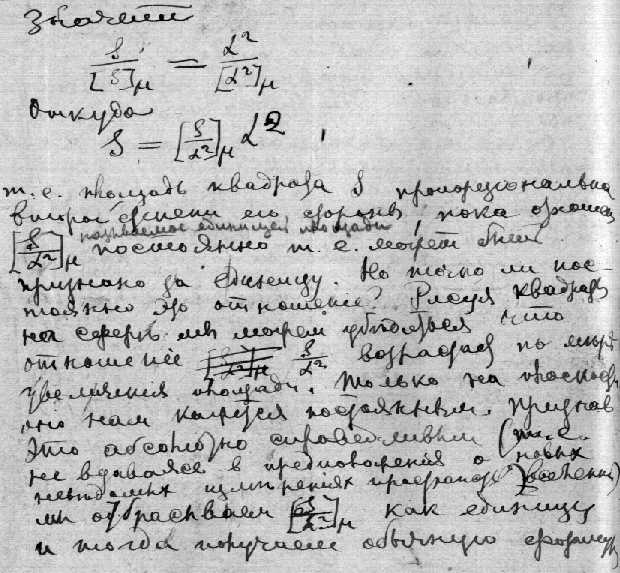 Значит
S / [S]μ = L² / [L²]μ ,
Откуда
S = [S/L²]μ L² ,
т. е. площадь квадрата S пропорциональна
второй степени его стороны, пока
называемое единицей площади
[S/L²]μ постоянно т. е. может быть
признано за единицу. Но точно ли пос-
тоянно это отношение? Рисуя квадраты
на сфере мы можем убедиться что
отношение S/L² возрастает по мере
увеличения площади. Только на плоскости
оно нам кажется постоянным. Признав
это абсолютно справедливым (т. е.
не вдаваясь в предположения о новых
неведомых измерениях пространства вселенной)
мы отбрасываем [S/L²]μ как единицу
и тогда получаем обычную формулу